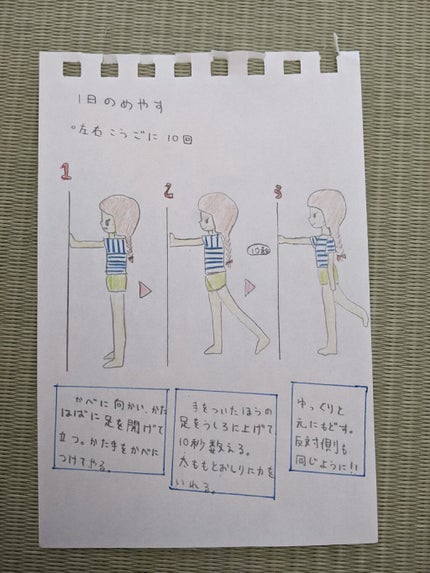 1日のめやす
°左右こうごに10回
1
2
3
10秒
かべに向かい、かた
はばに足を開げて
立つ。かた手をかべに
つけてやる。
手をついたほうの
足をうしろに上げて
10秒数える。
太ももとおしりに力を
いれる。
ゆっくりと
元にもどす。
反対側も
同じように!!